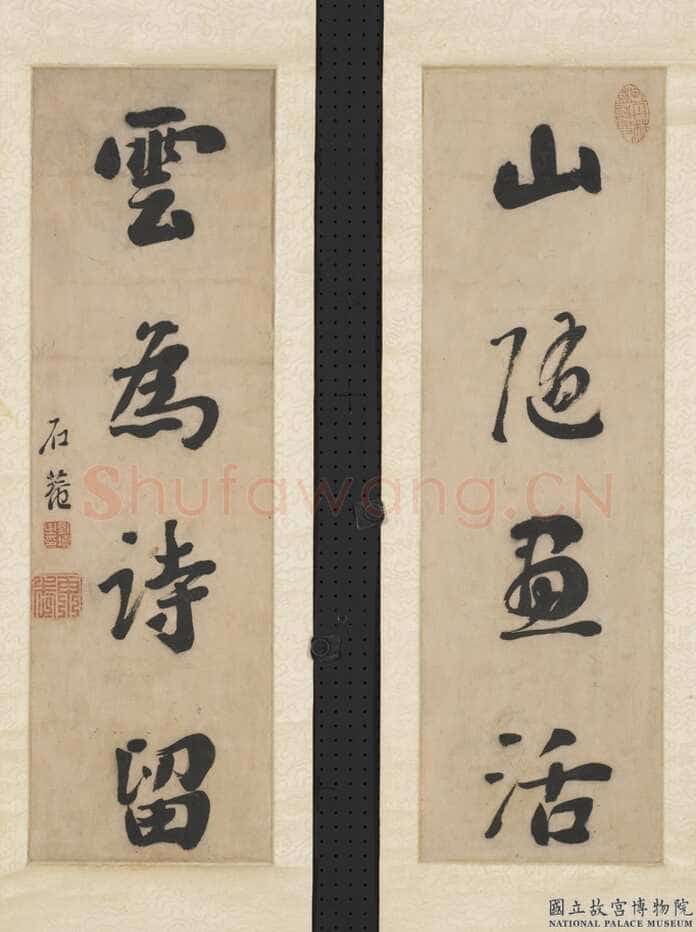 山隨畫活
雲為詩留
石菴
Shufawang.CN
國立故宮博物院
NATIONAL PALACE MUSEUM